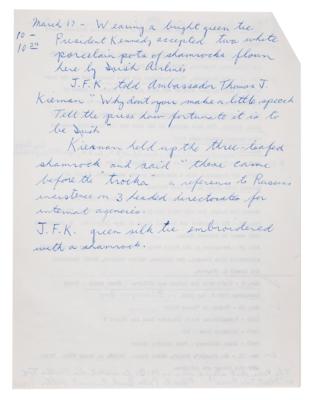 March 17 - Wearing a bright green tie
10 - President Kennedy accepted two white
10 20 porcelain pots of shamrocks flown
here by Irish Airlines
J.F.K. told Ambassador Thomas J.
Kiernan "Why don't you make a little speech
Tell the press how fortunate it is to
be Irish"
Kiernan held up the three-leafed
shamrock and said "these came
before the "troika" a reference to Russians
insistence on 3 headed directorates for
internat agencies.
J.F.K. green silk tie embroidered
with a shamrock.